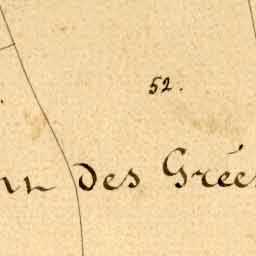 52.
des Grée